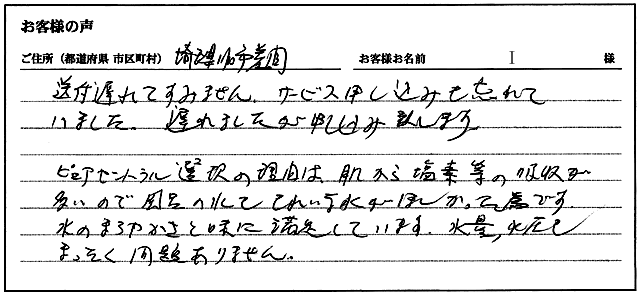 お客様の声
ご住所（都道府県 市区町村） 埼玉県川口市差間 お客様お名前 I 様
送付遅れてすみません。サービス申し込みも忘れて
いました。遅れましたが申し込み致します
ピュアセントラル選択の理由は、肌から塩素等の吸収が
多いので風呂に入れてきれいな水がほしかった為です
水のまろやかさと味に満足しています。水量、水圧も
まったく問題ありません。